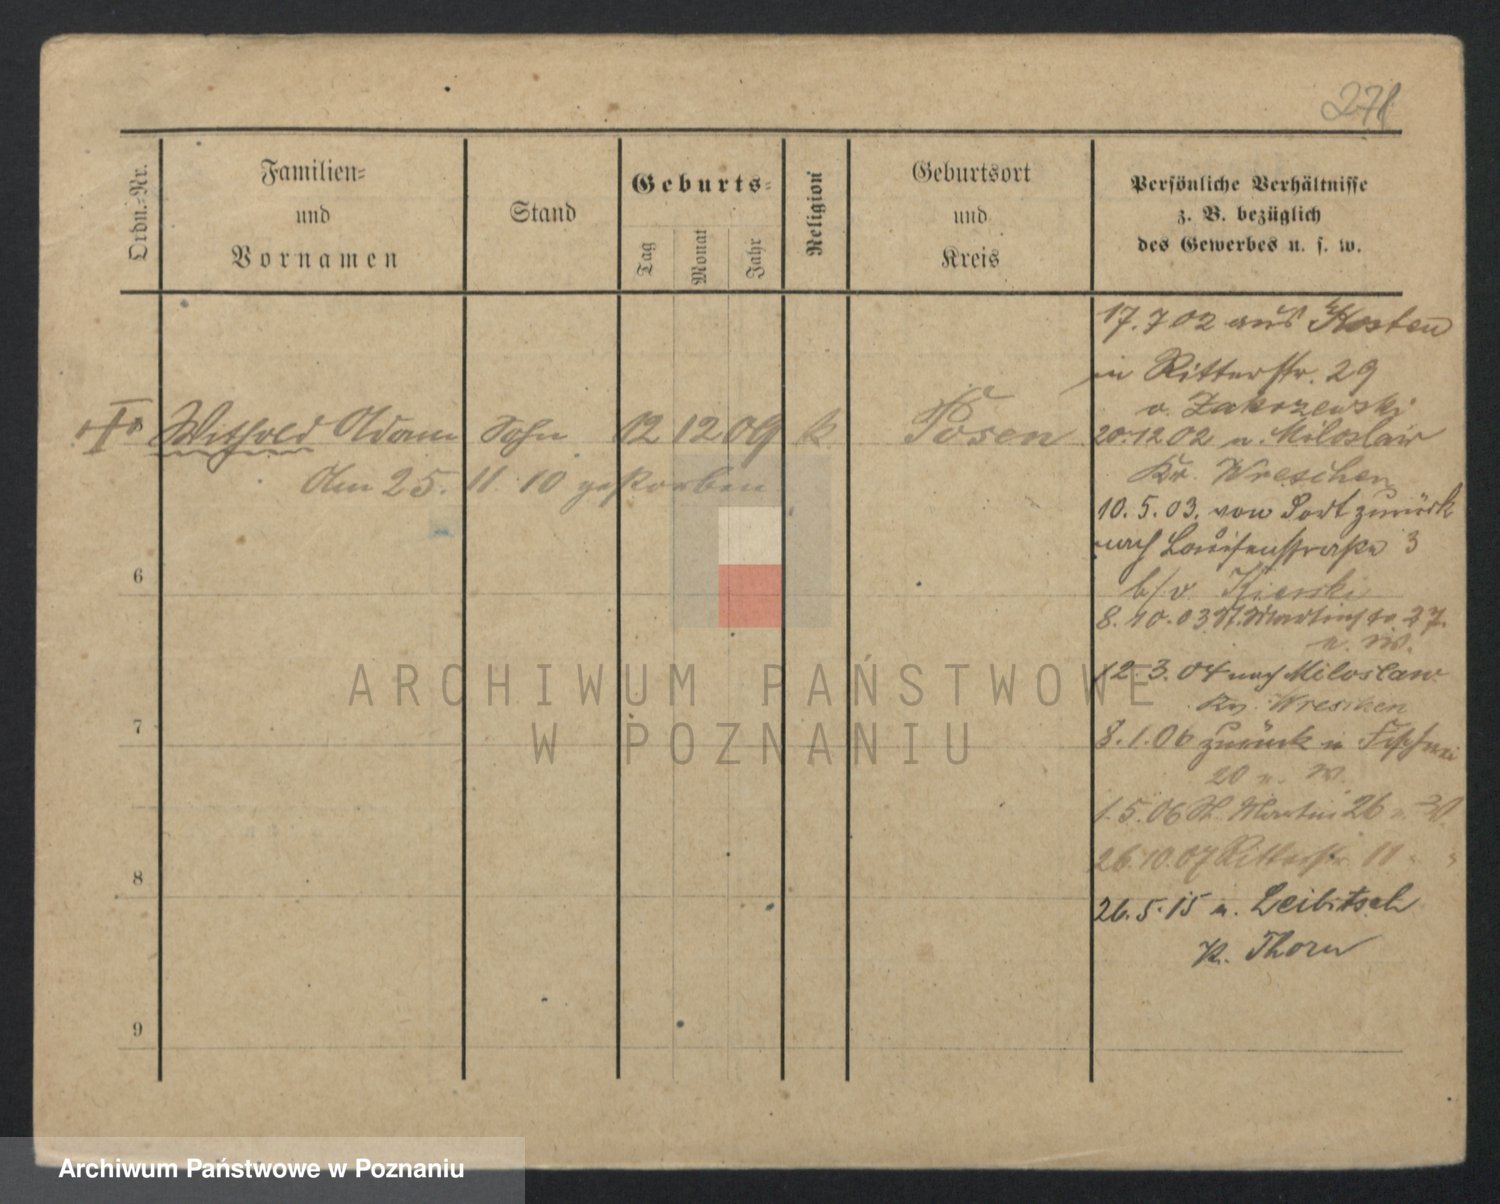 271
Ordn.-Nr.
Familien-
und
Vornamen
Stand
Geburts-
Tag
Monat
Jahr
Religion
Geburtsort
und
Kreis
Persönliche Verhältnisse
z. B. bezüglich
des Gewerbes u. s. w.
Withold Adam Sohn 02 12 09 k Posen
Am 25. 11. 10 gestorben
6
7
8
9
17.7 02 aus Kosten
in Ritterstr. 29
v. Zakrzewski
20.12 02 n. Miloslaw
Kr. Wreschen
10. 5. 03. von Dort zurück
nach Louisenstraße 3
b/v
8. 10. 03 St. Martinstr. 27.
12. 3. 04 nach Miloslaw
Kr. Wreschen
8. 1. 06 zurück n Fischerei
20 n. W.
1. 5. 06 St. Martin 26 n. W.
26. 10. 07 Ritterstr. 11 " "
26. 5. 15 n. Leibitsch
K. Thorn
ARCHIWUM PAŃSTWOWE
W POZNANIU
Archiwum Państwowe w Poznaniu